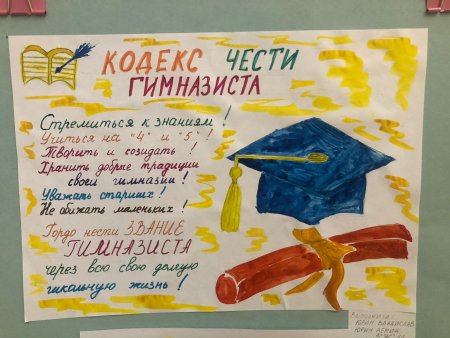 КОДЕКС ЧЕСТИ
ГИМНАЗИСТА
Стремиться к знаниям!
Учиться на "4" и "5"!
Творить и созидать!
Хранить добрые традиции
своей гимназии!
Уважать старших!
Не обижать маленьких!
Гордо нести ЗВАНИЕ
ГИМНАЗИСТА
через всю свою долгую
школьную жизнь!
ВЫПОЛНИЛИ:
ЮРИН ВЛАДИСЛАВ
ЮРИН